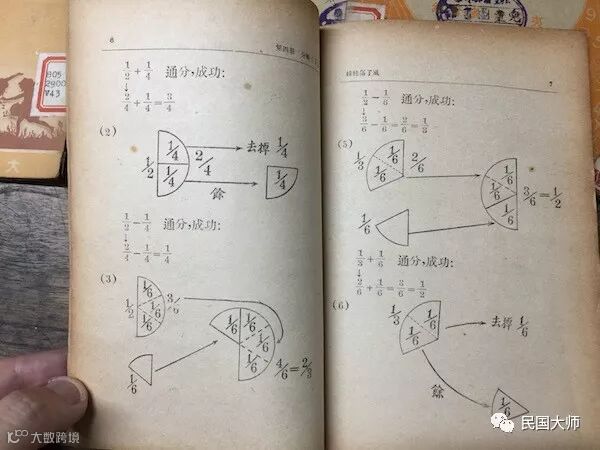 6
1/2 + 1/4 通分,成功:
↓
2/4 + 1/4 = 3/4
(2)
1/2
1/4
1/4
2/4
去掉 1/4
餘
1/4
1/2 - 1/4 通分,成功:
↓
2/4 - 1/4 = 1/4
(3)
1/2
1/6
1/6
1/6
3/6
1/6
1/6
1/6
1/6
1/6
4/6 = 2/3
7
1/2 - 1/6 通分,成功:
↓
3/6 - 1/6 = 2/6 = 1/3
(5)
1/3
1/6
1/6
2/6
1/6
1/6
1/6
1/6
3/6 = 1/2
1/3 + 1/6 通分,成功:
↓
2/6 + 1/6 = 3/6 = 1/2
(6)
1/3
1/6
1/6
去掉 1/6
餘
1/6
805
2900
V43
大
大数跨境
民国大师